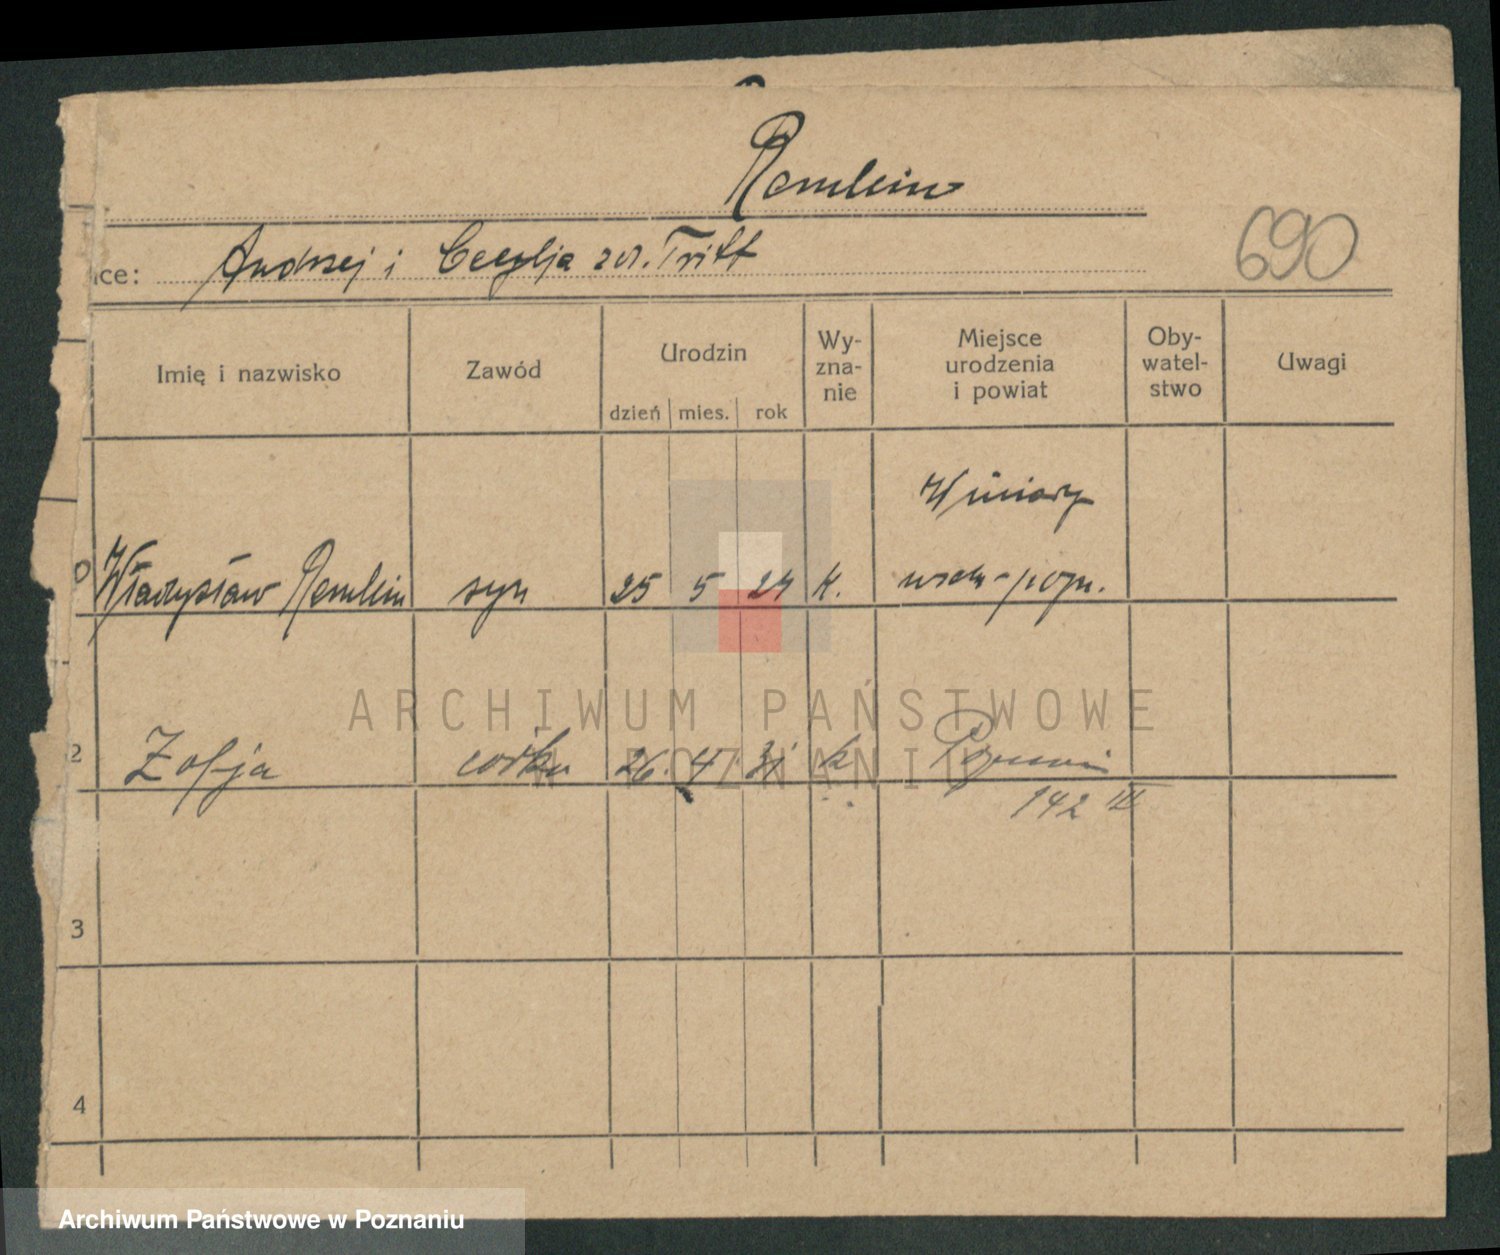 Remlein
ice: Andrzej i Cecylja zd. Tritt
690
Imię i nazwisko Zawód Urodzin dzień mies. rok Wy-zna-nie Miejsce urodzenia i powiat Oby-watel-stwo Uwagi
Winiary
0 Władysław Remlein syn 25 5 24 k. - pozn.
2 Zofja córka 26. 4. 31 k Poznań
142 III
3
4
ARCHIWUM PAŃSTWOWE
W POZNANIU
Archiwum Państwowe w Poznaniu